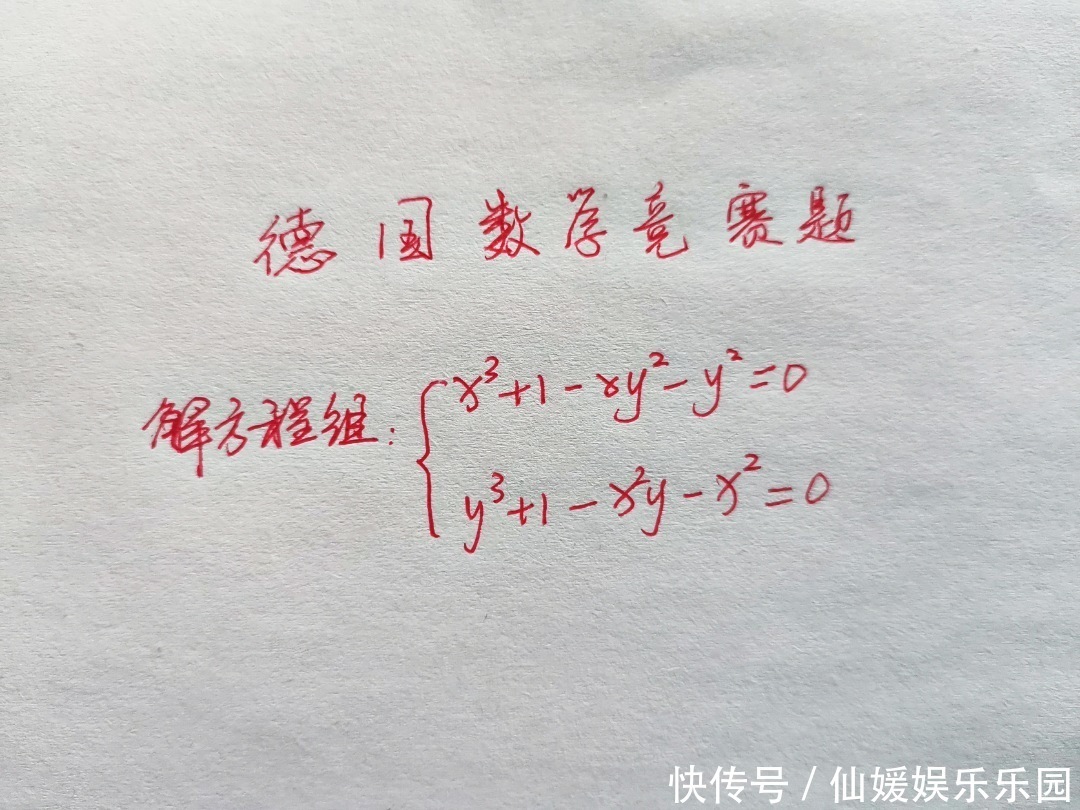 德国数学竞赛题
解方程组: x³+1-xy²-y²=0
y³+1-x²y-x²=0
快传号 / 仙媛娱乐乐园